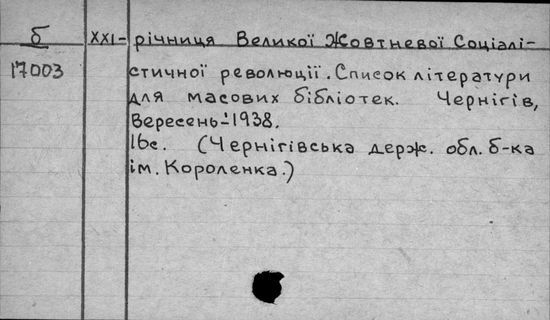 б XXI-річниця Великої Жовтневої Соціалі-
17003 стичної революції. Список літератури
для масових бібліотек. Чернігів,
Вересень-1938.
16с. (Чернігівська держ. обл. б-ка
ім. Короленка.)